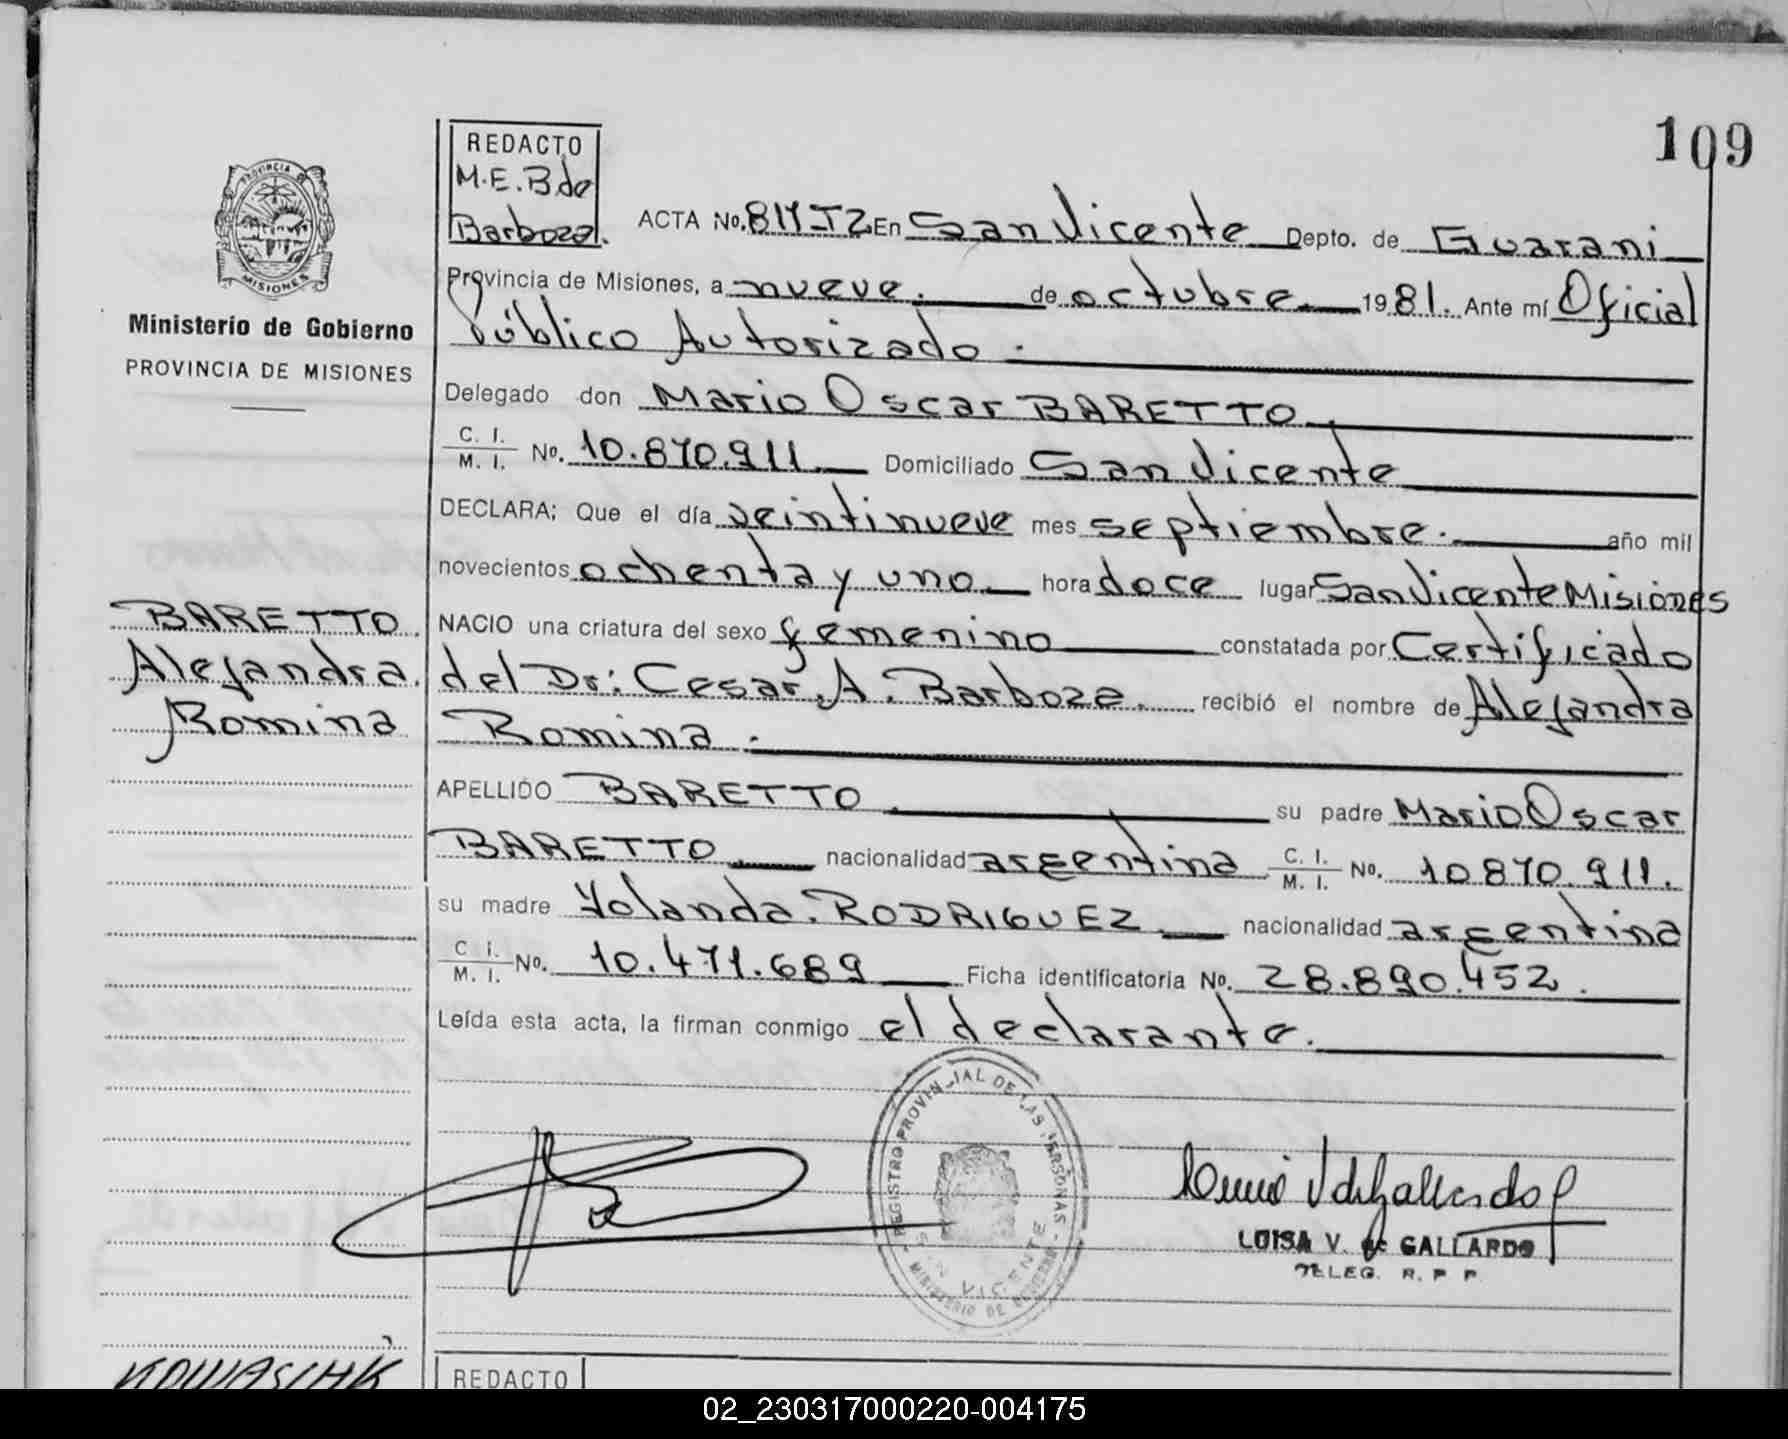 109
REDACTO
M.E.B de
Barboza.
PROVINCIA
MISIONES
Ministerio de Gobierno
PROVINCIA DE MISIONES
ACTA No. En San Vicente Depto. de Guarani
Provincia de Misiones, a nueve. de octubre 1981. Ante mí Oficial
Público Autorizado.
Delegado don Mario Oscar BARETTO
C. I.
M. I. No. 10.870.911 Domiciliado San Vicente
DECLARA; Que el día veintinueve mes septiembre. año mil
novecientos ochenta y uno hora doce lugar San Vicente Misiones
BARETTO
Alejandra
Romina
NACIO una criatura del sexo femenino constatada por Certificado
del Dr: Cesar A. Barboza. recibió el nombre de Alejandra
Romina.
APELLIDO BARETTO su padre Mario Oscar
BARETTO nacionalidad argentina C. I. M. I. No. 10.870.911.
su madre Yolanda RODRIGUEZ nacionalidad argentina
C. I. M. I. No. 10.471.689 Ficha identificatoria No. 28.890.452.
Leída esta acta, la firman conmigo el declarante.
REGISTRO PROVINCIAL DE LAS PERSONAS
SAN VICENTE
MINISTERIO DE GOBIERNO
LUISA V. de GALLARDO
DELEG. R. P. P.
KOWASCHK
REDACTO
02_230317000220-004175